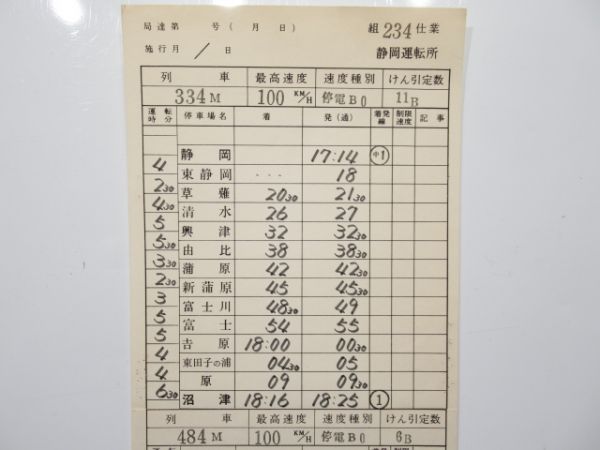 局達第 号( 月 日) 組 234 仕業
施行月 / 日 静岡運転所
列 車 最高速度 速度種別 けん引定数
334M 100 KM/H 停電B0 11B
運転時分 停車場名 着 発(通) 着発線 制限速度 記事
静岡 17:14 中1
4
東静岡 ... 18
2 30
草薙 20 30 21 30
4 30
清水 26 27
5
興津 32 32 30
5 30
由比 38 38 30
3 30
蒲原 42 42 30
2 30
新蒲原 45 45 30
3
富士川 48 30 49
5
富士 54 55
5
吉原 18:00 00 30
4
東田子の浦 04 30 05
4
原 09 09 30
6 30
沼津 18:16 18:25 ①
列 車 最高速度 速度種別 けん引定数
484M 100 KM/H 停電B0 6B